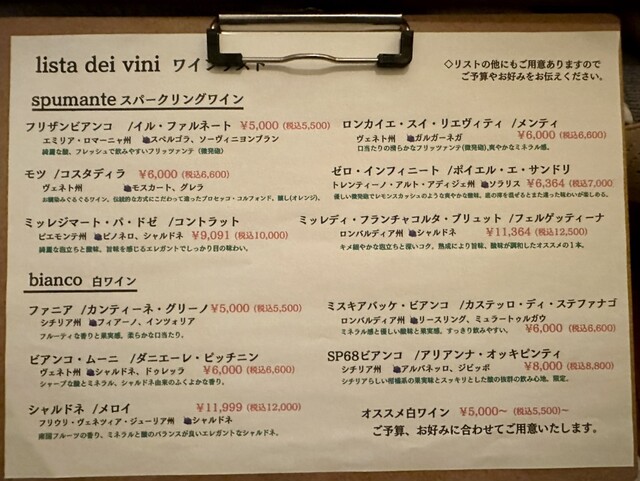 lista dei vini ワインリスト
◇リストの他にもご用意ありますので
ご予算やお好みをお伝えください。
spumante スパークリングワイン
フリザンビアンコ /イル・ファルネート ¥5,000 (税込5,500)
エミリア・ロマーニャ州 スペルゴラ、ソーヴィニヨンブラン
綺麗な酸、フレッシュで飲みやすいフリッツァンテ（微発砲）
ロンカイエ・スイ・リエヴィティ /メンティ
ヴェネト州 ガルガーネガ ¥6,000 (税込6,600)
口当たりの滑らかなフリッツァンテ(微発砲),爽やかなミネラル感。
モツ /コスタディラ ¥6,000 (税込6,600)
ヴェネト州 モスカート、グレラ
お馴染みぐるぐるワイン。伝統的な方式にこだわって造ったプロセッコ・コルフォンド、醸し(オレンジ)。
ゼロ・インフィニート /ポイエル・エ・サンドリ
トレンティーノ・アルト・アディジェ州 ソラリス ¥6,364 (税込7,000)
優しい微発砲でレモンスカッシュのような爽やかな酸味。底の澱を混ぜるとまた違った味わいが楽しめる。
ミッレジマート・パ・ドゼ /コントラット
ピエモンテ州 ピノネロ、シャルドネ ¥9,091 (税込10,000)
綺麗な泡立ちと酸味、旨味を感じるエレガントでしっかり目の味わい。
ミッレディ・フランチャコルタ・ブリュット /フェルゲッティーナ
ロンバルディア州 シャルドネ ¥11,364 (税込12,500)
キメ細やかな泡立ちと深いコク。熟成により旨味、酸味が調和したオススメの1本。
bianco 白ワイン
ファニア /カンティーネ・グリーノ ¥5,000 (税込5,500)
シチリア州 フィアーノ、インツォリア
フルーティな香りと果実感、柔らかな口当たり。
ミスキアパッケ・ビアンコ /カステッロ・ディ・ステファナゴ
ロンバルディア州 リースリング、ミュラートゥルガウ
ミネラル感と優しい酸味と果実感、すっきり飲みやすい。 ¥6,000 (税込6,600)
ビアンコ・ムーニ /ダニエーレ・ピッチニン
ヴェネト州 シャルドネ、ドゥレッラ ¥6,000 (税込6,600)
シャープな酸とミネラル、シャルドネ由来のふくよかな香り。
SP68ビアンコ /アリアンナ・オッキピンティ
シチリア州 アルバネッロ、ジビッボ ¥8,000 (税込8,800)
シチリアらしい柑橘系の果実味とスッキリとした酸の抜群の飲み心地。限定。
シャルドネ /メロイ ¥11,999 (税込12,000)
フリウリ・ヴェネツィア・ジューリア州 シャルドネ
南国フルーツの香り、ミネラルと酸のバランスが良いエレガントなシャルドネ。
オススメ白ワイン ¥5,000～ (税込5,500)～
ご予算、お好みに合わせてご用意いたします。